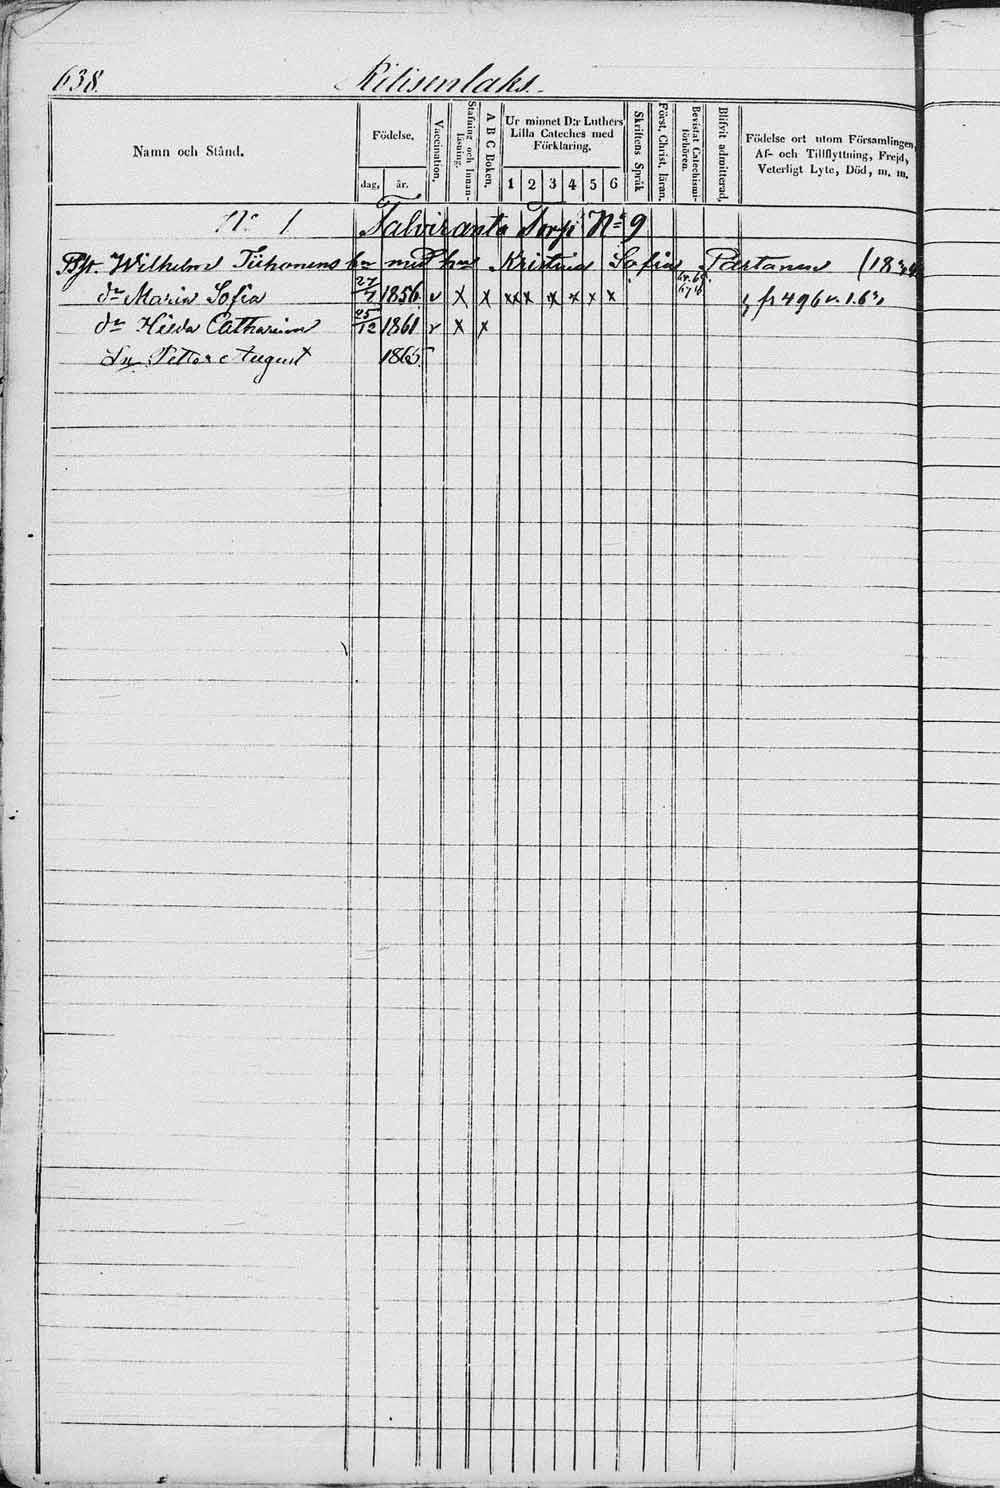 638.
Kitisenlaks.
Namn och Stånd.
Födelse.
dag, år.
Vaccination,
Stafning och Innanläsning.
A B C Boken,
Ur minnet D:r Luthers Lilla Cateches med Förklaring.
1 2 3 4 5 6
Skriftens Språk
Först, Christ, läran,
Bevistat Catechismiförhören.
Blifvit admitterad,
Födelse ort utom Församlingen,
Af- och Tillflyttning, Frejd,
Veterligt Lyte, Död, m. m.
No 1 Talviranta Torp No 9
Wilhelm Tiihonens med Kristina Sofia Partanen
dr Maria Sofia 27/7 1856 v x x x x x x x x x
dr Hilda Catharina 25/12 1861 v x x
Sn Petter August 1865